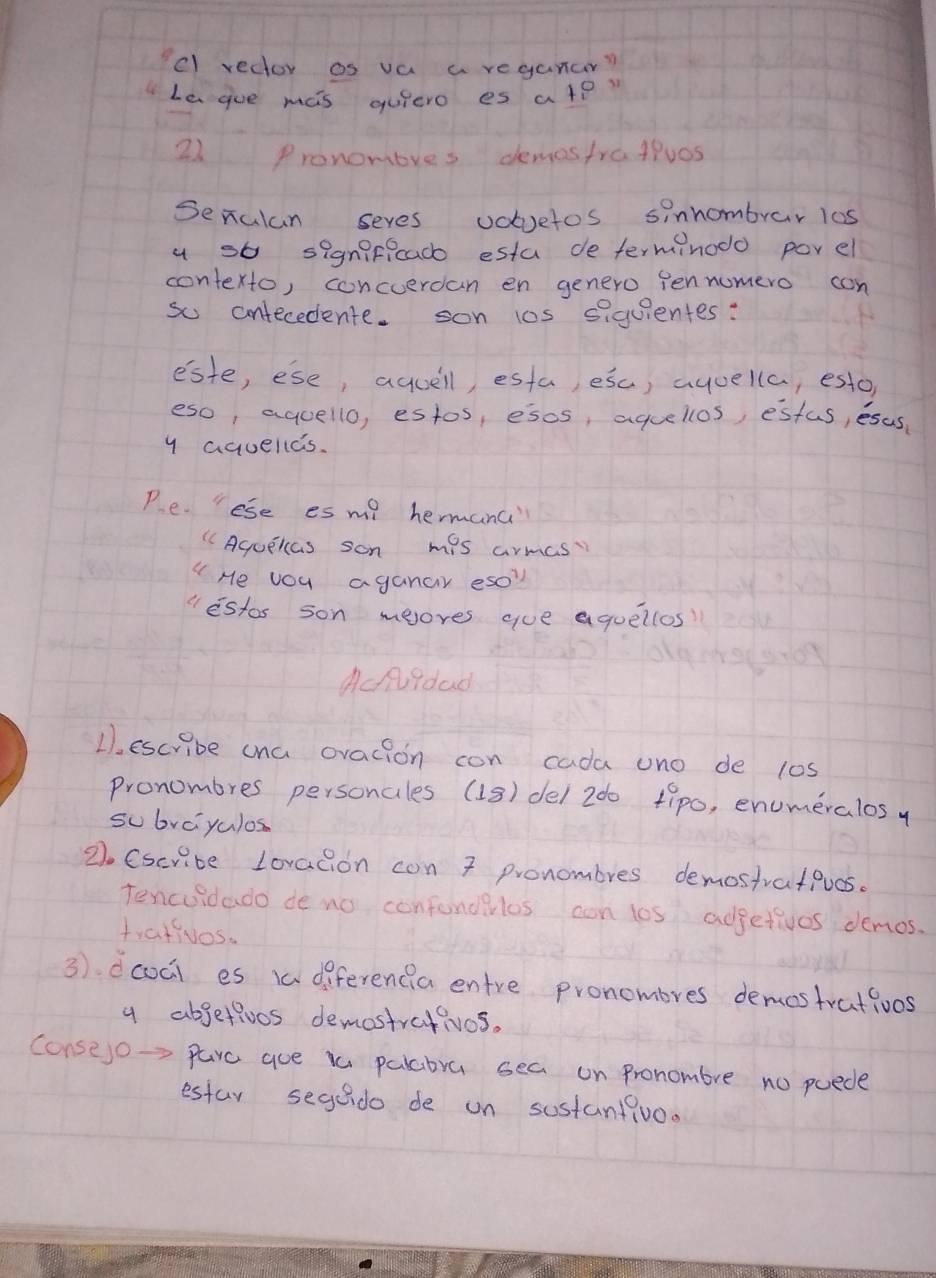 "el rector os va a regañar"
"La que más quiero es a ti"
2) Pronombres demostrativos
Señalan seres u objetos sin nombrar los
y su significado esta determinado por el
contexto, concuerdan en genero i en numero con
su antecedente. son los siguientes:
éste, ése, aquéll, esta, ésa, aquella, esto,
eso, aquello, estos, ésos, aquellos, éstas, ésas,
y aquellás.
P.e. "ése es mi hermana"
"Aquéllas son mis armas"
"Me voy a ganar eso"
"éstos son mejores que aquéllos"
Actividad
1). escribe una oración con cada uno de los
pronombres personales (18) del 2do tipo, enuméralos y
subráyalos
2). escribe 1 oración con 7 pronombres demostrativos.
Ten cuidado de no confundirlos con los adjetivos demos-
trativos.
3). ¿cuál es la diferencia entre pronombres demostrativos
y abjetivos demostrativos.
Consejo → Para que la palabra sea un pronombre no puede
estar seguido de un sustantivo.